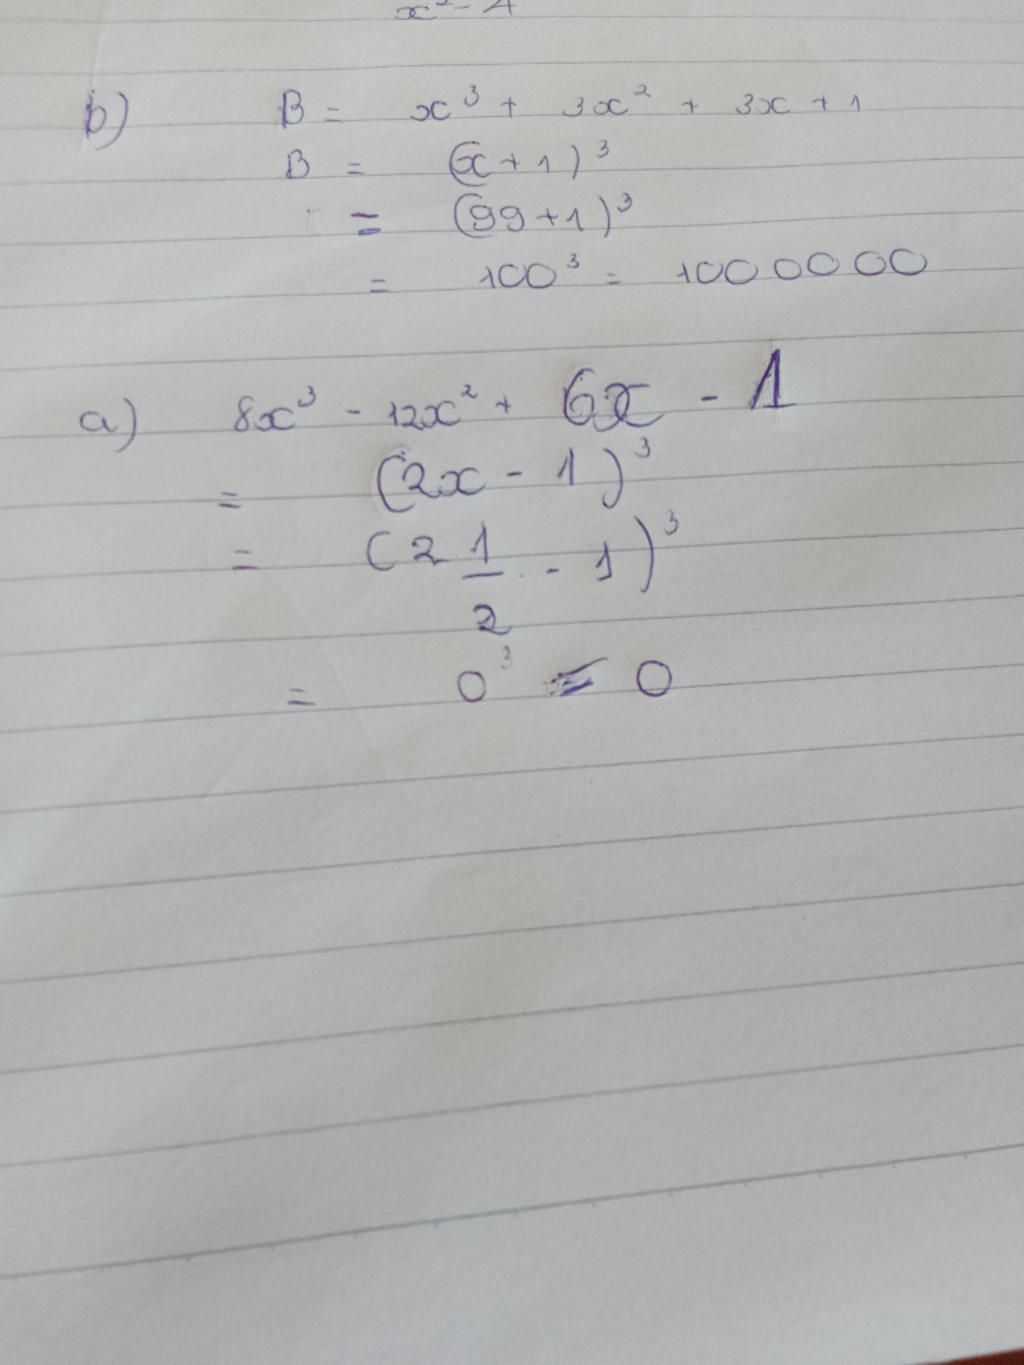 x² - 1
b) B = x³ + 3x² + 3x + 1
B = (x + 1)³
= (99 + 1)³
= 100³ = 1000000
a) 8x³ - 12x² + 6x - 1
= (2x - 1)³
= (2 1/2 - 1)³
= 0³ = 0